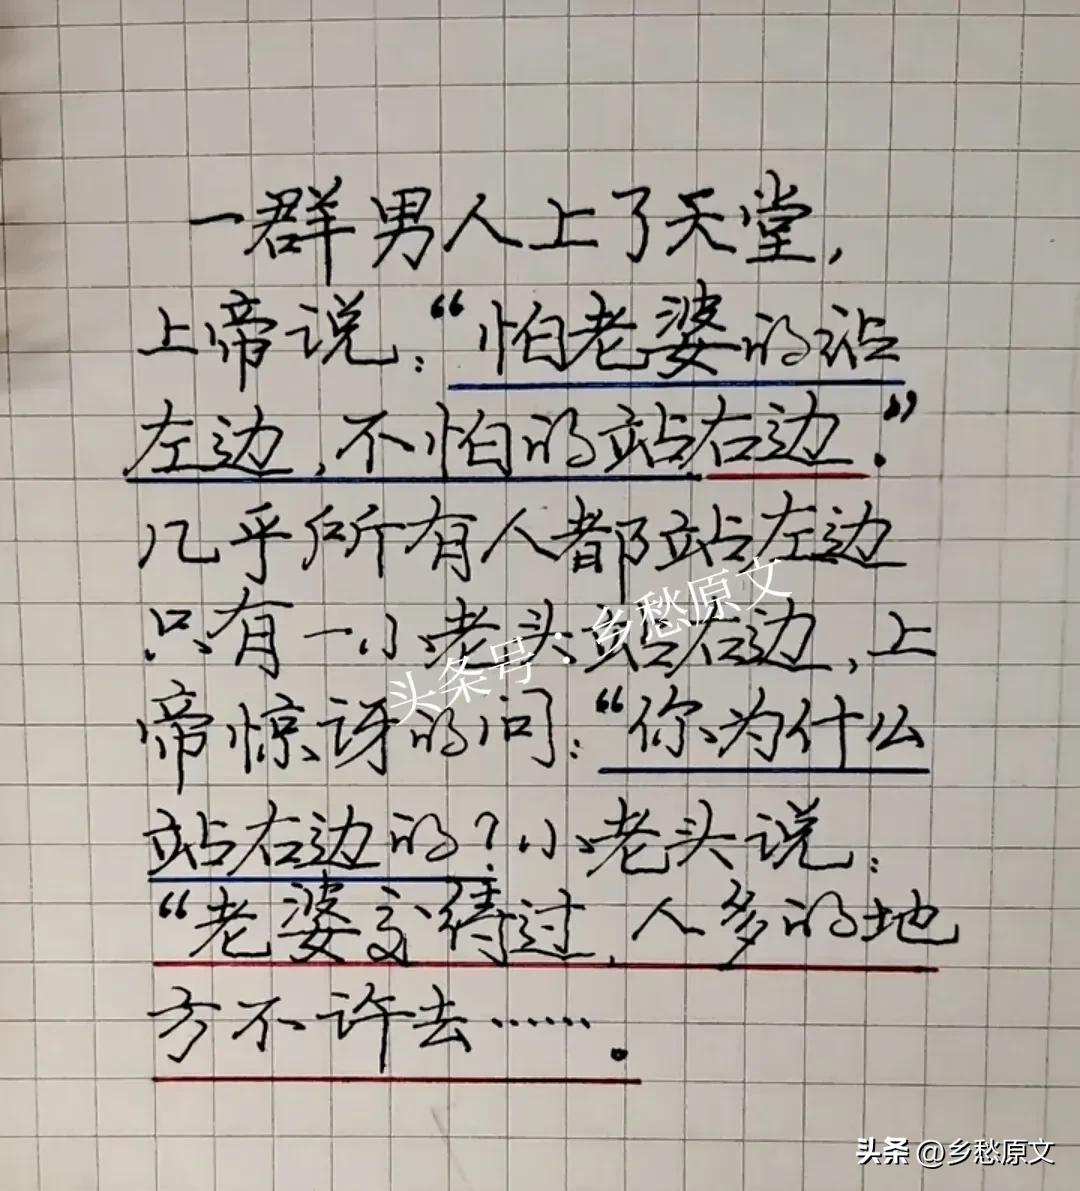 一群男人上了天堂，
上帝说：“怕老婆的站
左边，不怕的站右边.”
几乎所有人都站左边
只有一小老头站右边，上
帝惊讶的问：“你为什么
站右边的？小老头说：
“老婆交待过，人多的地
方不许去……。
头条号：乡愁原文
头条 @乡愁原文